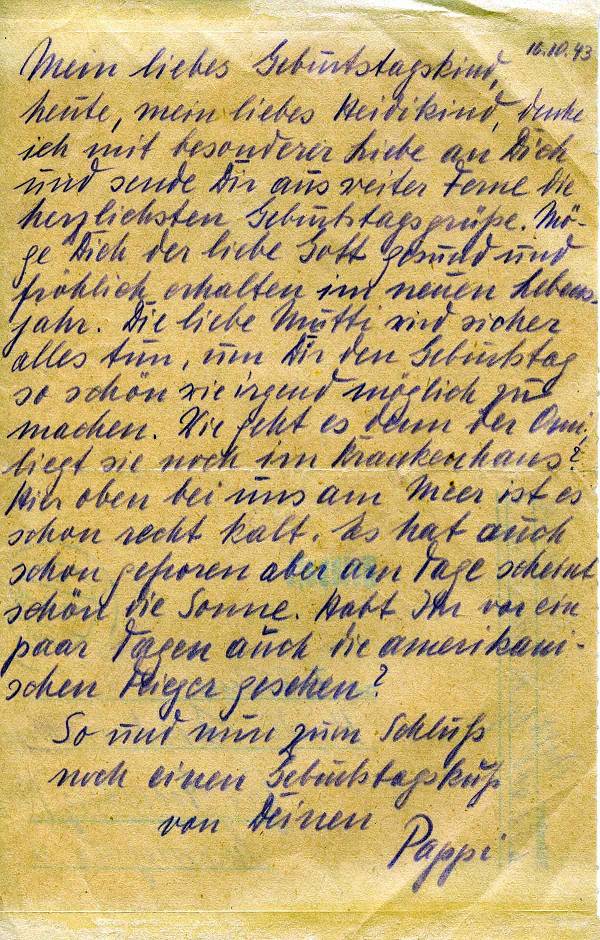 16.10.43
Mein liebes Geburtstagskind,
heute, mein liebes Heidikind, denke
ich mit besonderer Liebe an Dich
und sende Dir aus weiter Ferne die
herzlichsten Geburtstagsgrüße. Mö-
ge Dich der liebe Gott gesund und
fröhlich erhalten im neuen Lebens-
jahr. Die liebe Mutti wird sicher
alles tun, um Dir den Geburtstag
so schön wie irgend möglich zu
machen. Wie geht es denn der Omi,
liegt sie noch im Krankenhaus?
Hier oben bei uns am Meer ist es
schon recht kalt. Es hat auch
schon gefroren aber am Tage scheint
schön die Sonne. Habt Ihr vor ein
paar Tagen auch die amerikani-
schen Flieger gesehen?
So und nun zum Schluß
noch einen Geburtstagskuß
von Deinen
Pappi